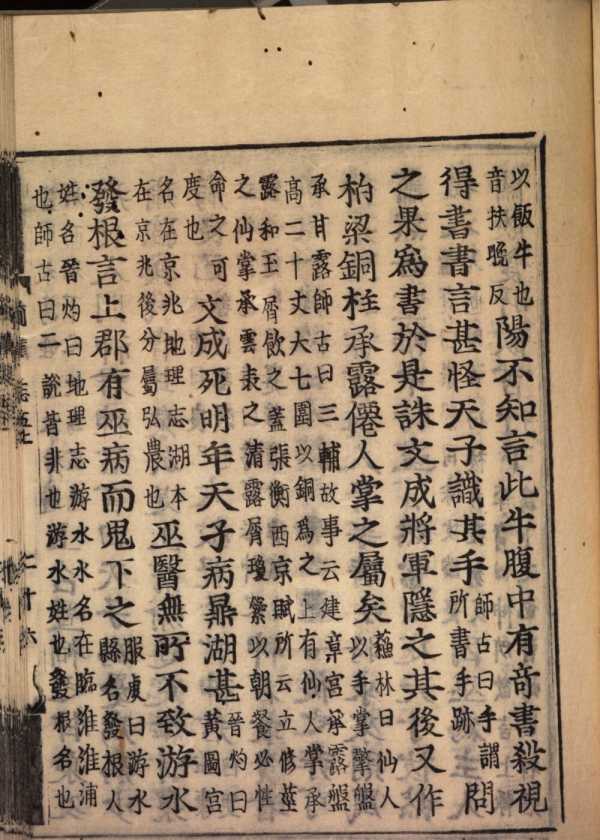 以飯牛也音扶晚反陽不知言此牛腹中有奇書殺視
得書書言甚怪天子識其手師古曰手謂所書手跡問
之果爲書於是誅文成將軍隱之其後又作
柏梁銅柱承露僊人掌之屬矣蘇林曰仙人以手掌擎盤
承甘露師古曰三輔故事云建章宮承露盤
高二十丈大七圍以銅爲之上有仙人掌承
露和玉屑飲之蓋張衡西京賦所云立修莖
之仙掌承雲表之清露屑瓊蘂以朝餐必性
命之可度也文成死明年天子病鼎湖甚晉灼曰黃圖宮
名在京兆地理志湖本在京兆後分屬弘農也巫醫無所不致游水
發根言上郡有巫病而鬼下之服虔曰游水縣名發根人
姓名晉灼曰地理志游水水名在臨淮淮浦
也師古曰二說皆非也游水姓也發根名也